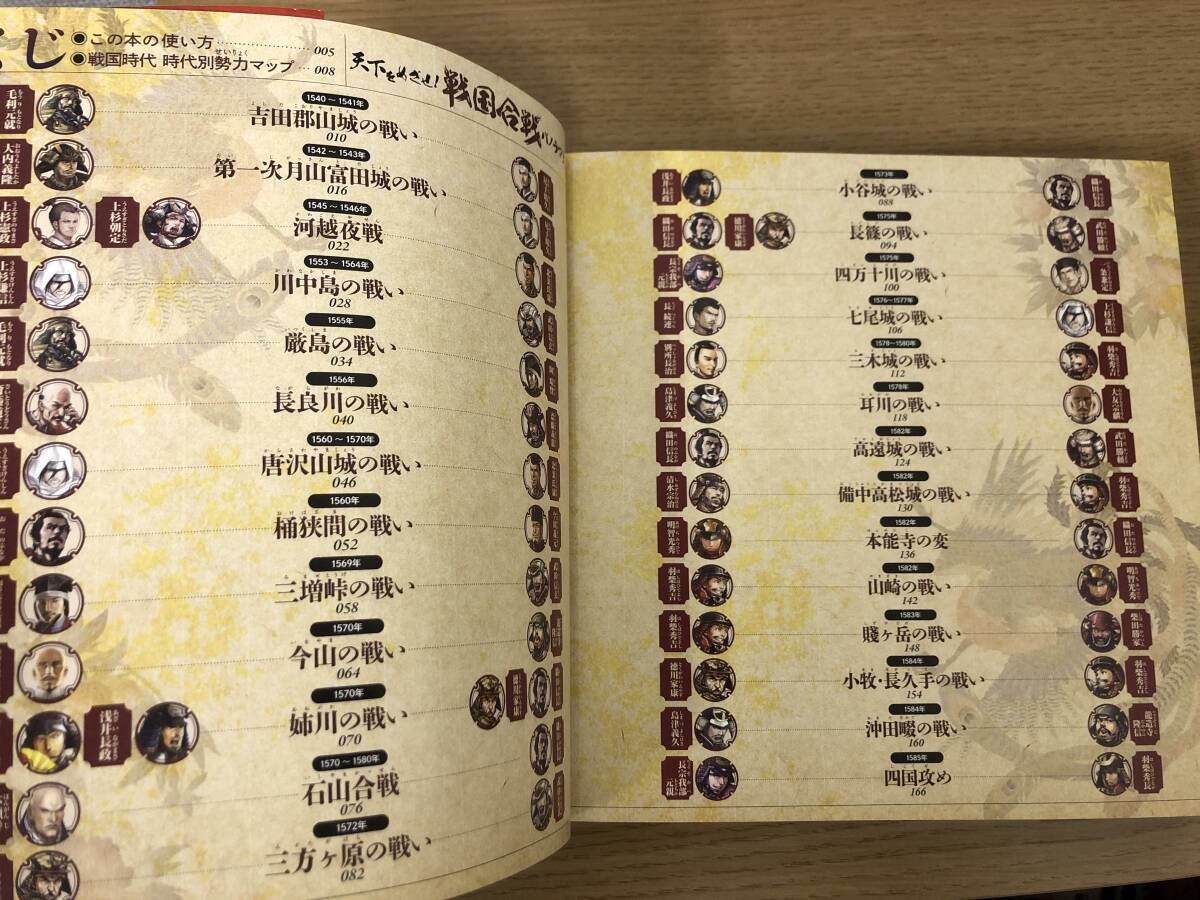 くじ
●この本の使い方 005
●戦国時代 時代別勢力マップ 008
せいりょく
天下をめざせ!
戦国合戦
毛利元就
1540～1541年
吉田郡山城の戦い
010
大内義隆
1542～1543年
第一次月山富田城の戦い
016
上杉憲政
上杉朝定
1545～1546年
河越夜戦
022
上杉謙信
1553～1564年
川中島の戦い
028
毛利元就
1555年
厳島の戦い
034
1556年
長良川の戦い
040
1560～1570年
唐沢山城の戦い
046
1560年
桶狭間の戦い
052
1569年
三増峠の戦い
058
1570年
今山の戦い
064
浅井長政
1570年
姉川の戦い
070
徳川家康
1570～1580年
石山合戦
076
1572年
三方ヶ原の戦い
082
浅井長政
1573年
小谷城の戦い
088
織田信長
織田信長
徳川家康
1575年
長篠の戦い
094
武田勝頼
長宗我部元親
1575年
四万十川の戦い
100
一条兼定
長続連
1576～1577年
七尾城の戦い
106
上杉謙信
別所長治
1578～1580年
三木城の戦い
112
羽柴秀吉
島津義久
1578年
耳川の戦い
118
大友宗麟
織田信長
1582年
高遠城の戦い
124
武田勝頼
清水宗治
1582年
備中高松城の戦い
130
羽柴秀吉
明智光秀
1582年
本能寺の変
136
織田信長
羽柴秀吉
1582年
山崎の戦い
142
明智光秀
羽柴秀吉
1583年
賤ヶ岳の戦い
148
柴田勝家
徳川家康
1584年
小牧・長久手の戦い
154
羽柴秀吉
島津義久
1584年
沖田畷の戦い
160
龍造寺隆信
長宗我部元親
1585年
四国攻め
166
羽柴秀長